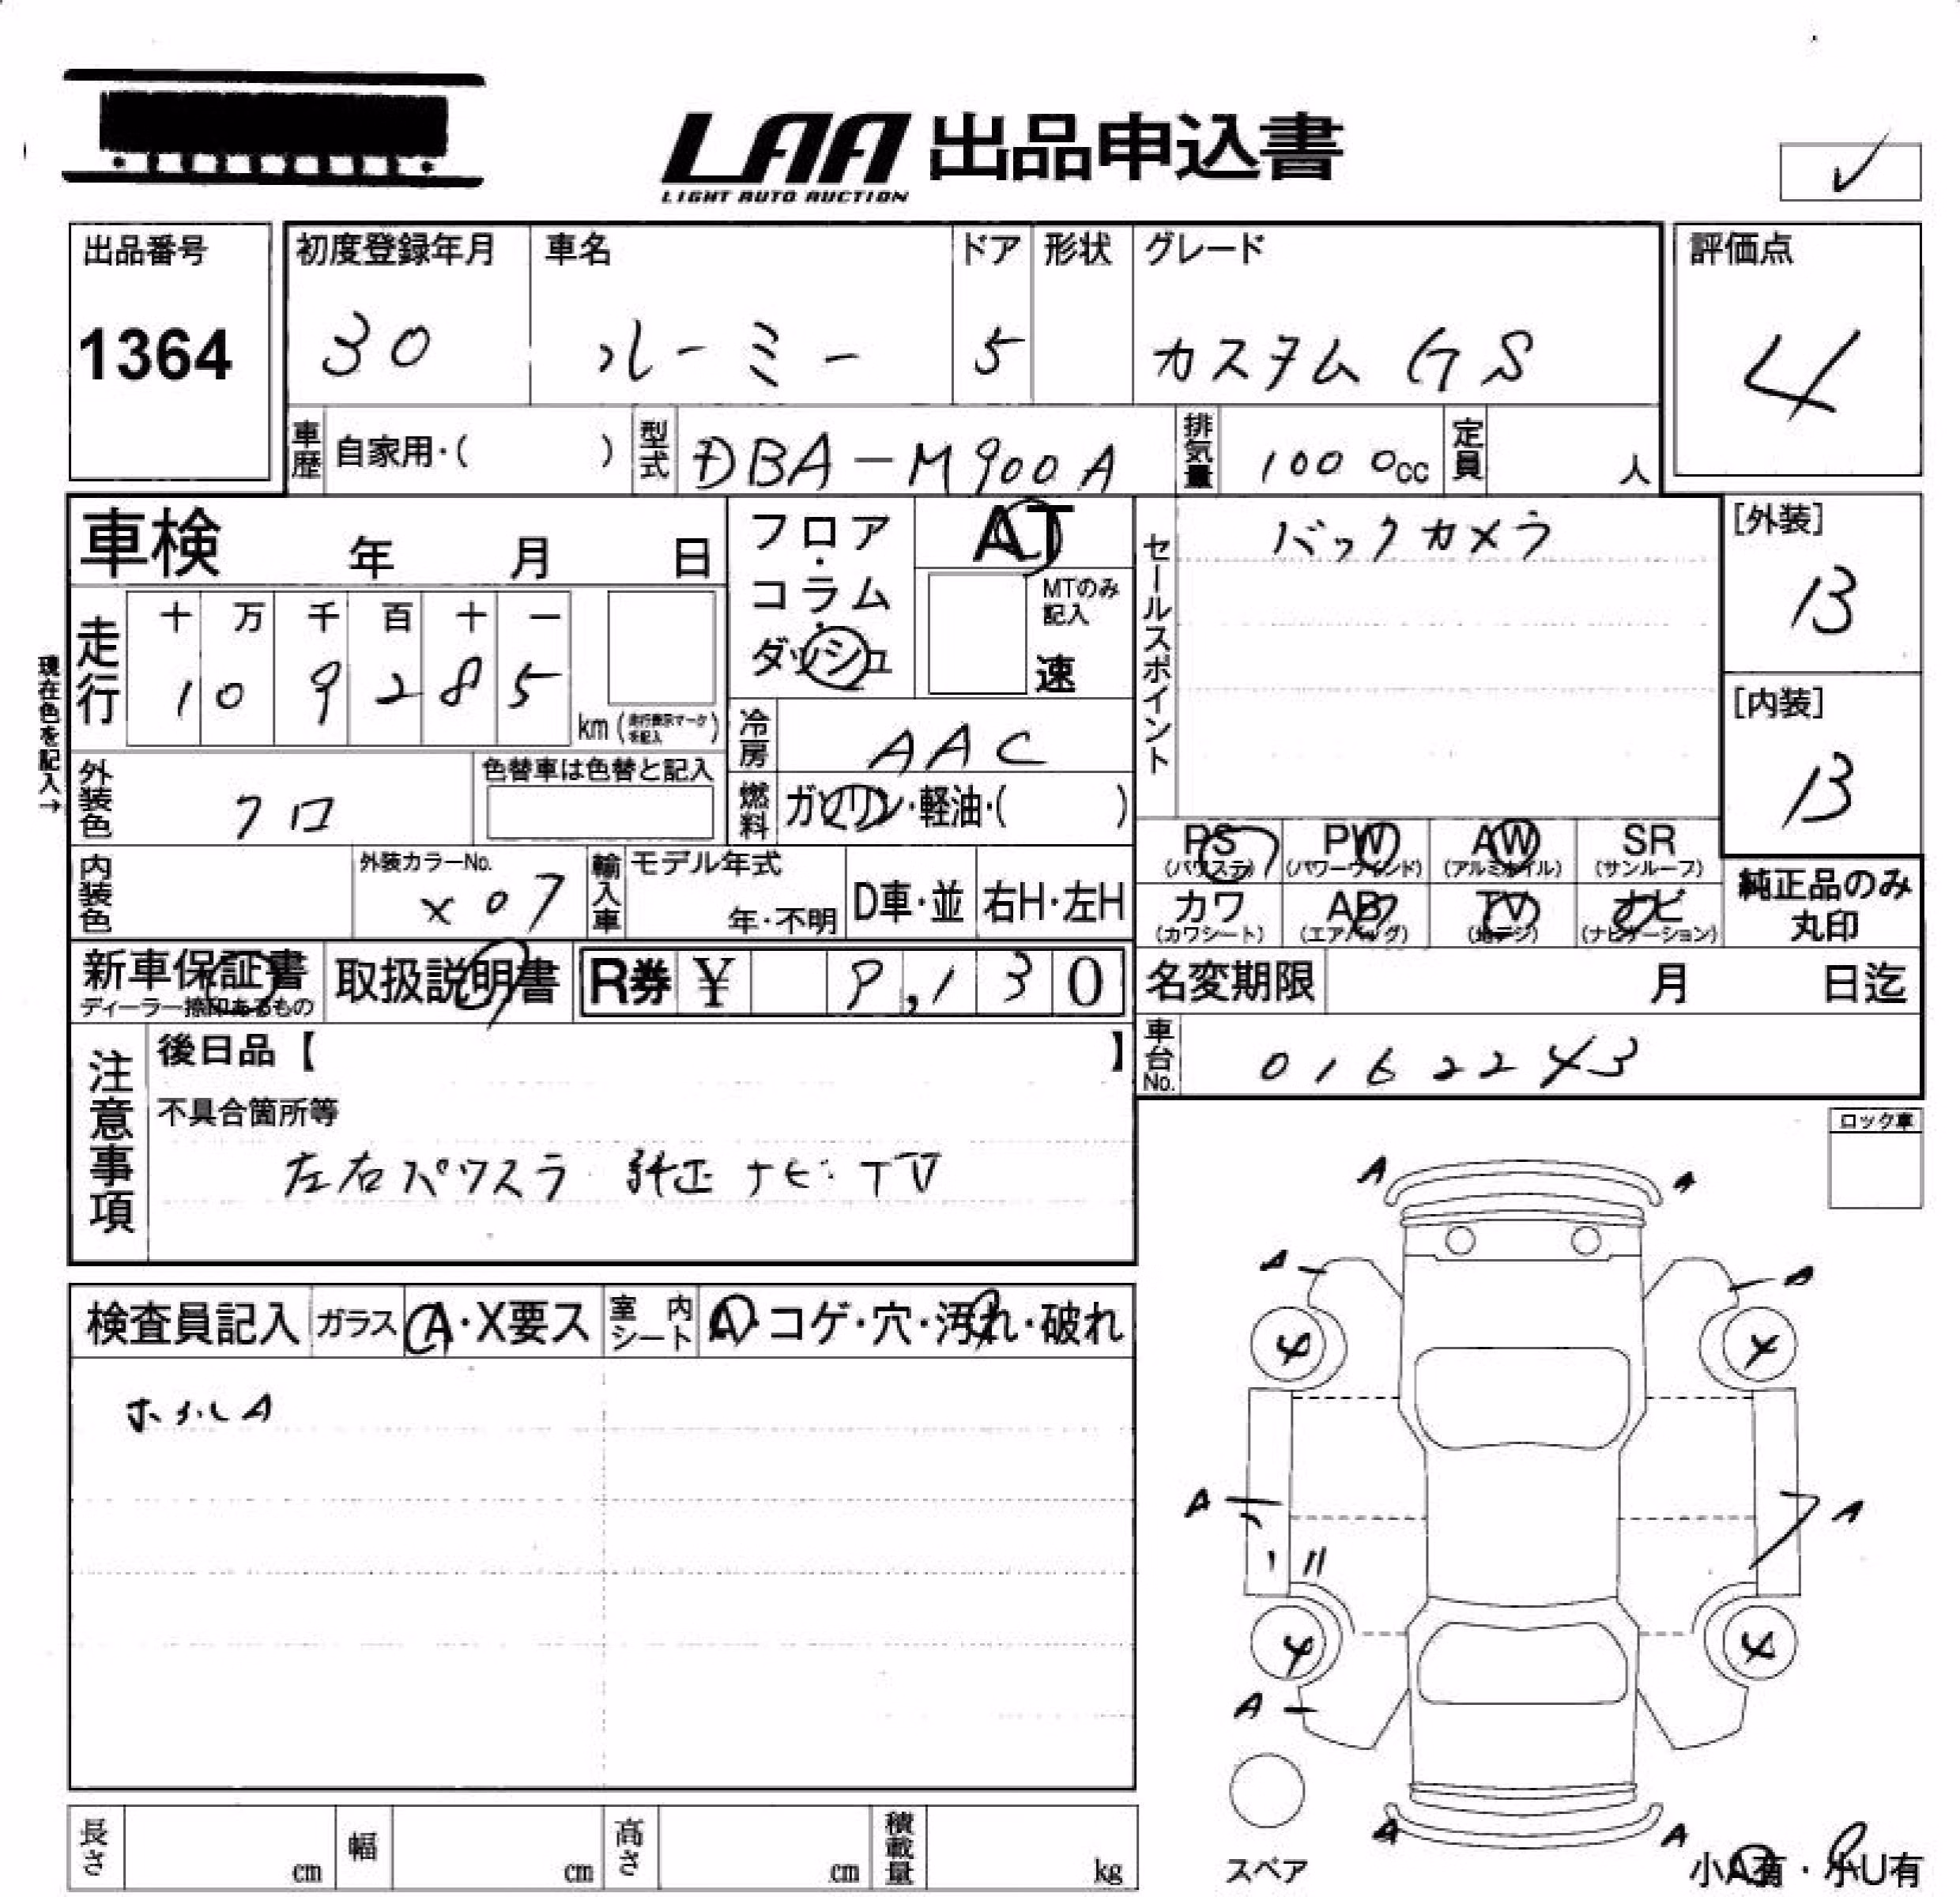 LAA 出品申込書
LIGHT AUTO AUCTION
出品番号
1364
初度登録年月
30
車名
ルーミー
ドア
5
形状
グレード
カスタム GS
評価点
4
車歴
自家用・( )
型式
DBA-M900A
排気量
1000cc
定員
人
車検 年 月 日
フロア・コラム・ダッシュ
AT
MTのみ記入
速
セールスポイント
バックカメラ
[外装]
B
[内装]
B
現在色を記入→
走行
十 万 千 百 十 一
1 0 9 2 8 5
km (走行表示マークを記入)
冷房
AAC
外装色
クロ
色替車は色替と記入
燃料
ガソリン・軽油・( )
PS
(パワステ)
PW
(パワーウインド)
AW
(アルミホイル)
SR
(サンルーフ)
カワ
(カワシート)
AB
(エアバッグ)
TV
(地デジ)
ナビ
(ナビゲーション)
純正品のみ
丸印
内装色
外装カラーNo.
X07
輸入車
モデル年式
年・不明
D車・並
右H・左H
新車保証書
ディーラー捺印あるもの
取扱説明書
R券 ¥ 9,130
名変期限 月 日迄
車台No.
0162243
注意事項
後日品【 】
不具合箇所等
左右パワスラ 純正ナビ・TV
ロック車
検査員記入
ガラス
A・X要ス
室内シート
A・コゲ・穴・汚れ・破れ
ホイルA
A A
A A
4 4
A A
4 4
A
A A
スペア
小A有・小U有
長さ cm
幅 cm
高さ cm
積載量 kg